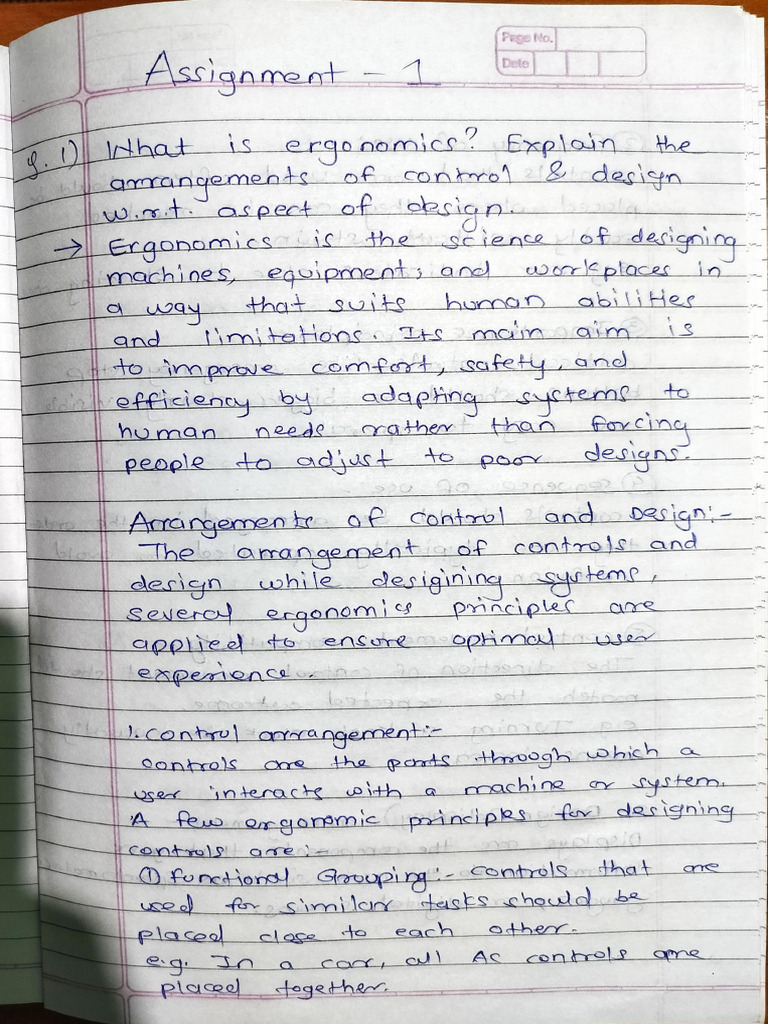 Page No.
Date
Assignment - 1
Q. 1) What is ergonomics? Explain the
arrangements of control & design
w.r.t. aspect of design.
→ Ergonomics is the science of designing
machines, equipment, and workplaces in
a way that suits human abilities
and limitations. Its main aim is
to improve comfort, safety, and
efficiency by adapting systems to
human needs rather than forcing
people to adjust to poor designs.
Arrangements of control and Design:-
The arrangement of controls and
design while desigining systems,
several ergonomics principles are
applied to ensure optimal user
experience.
1. control arrangement:-
controls are the parts through which a
user interacts with a machine or system.
A few ergonomic principles for designing
controls are:-
① functional Grouping:- controls that are
used for similar tasks should be
placed close to each other.
e.g. In a car, all AC controls are
placed together.